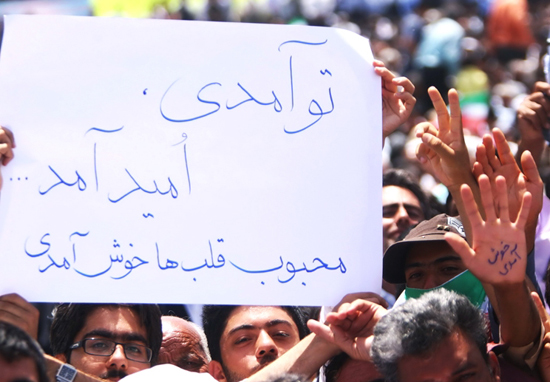 تو آمدی،
اُمید آمد...
محبوب قلب ها خوش آمدی
خوش
آمدی